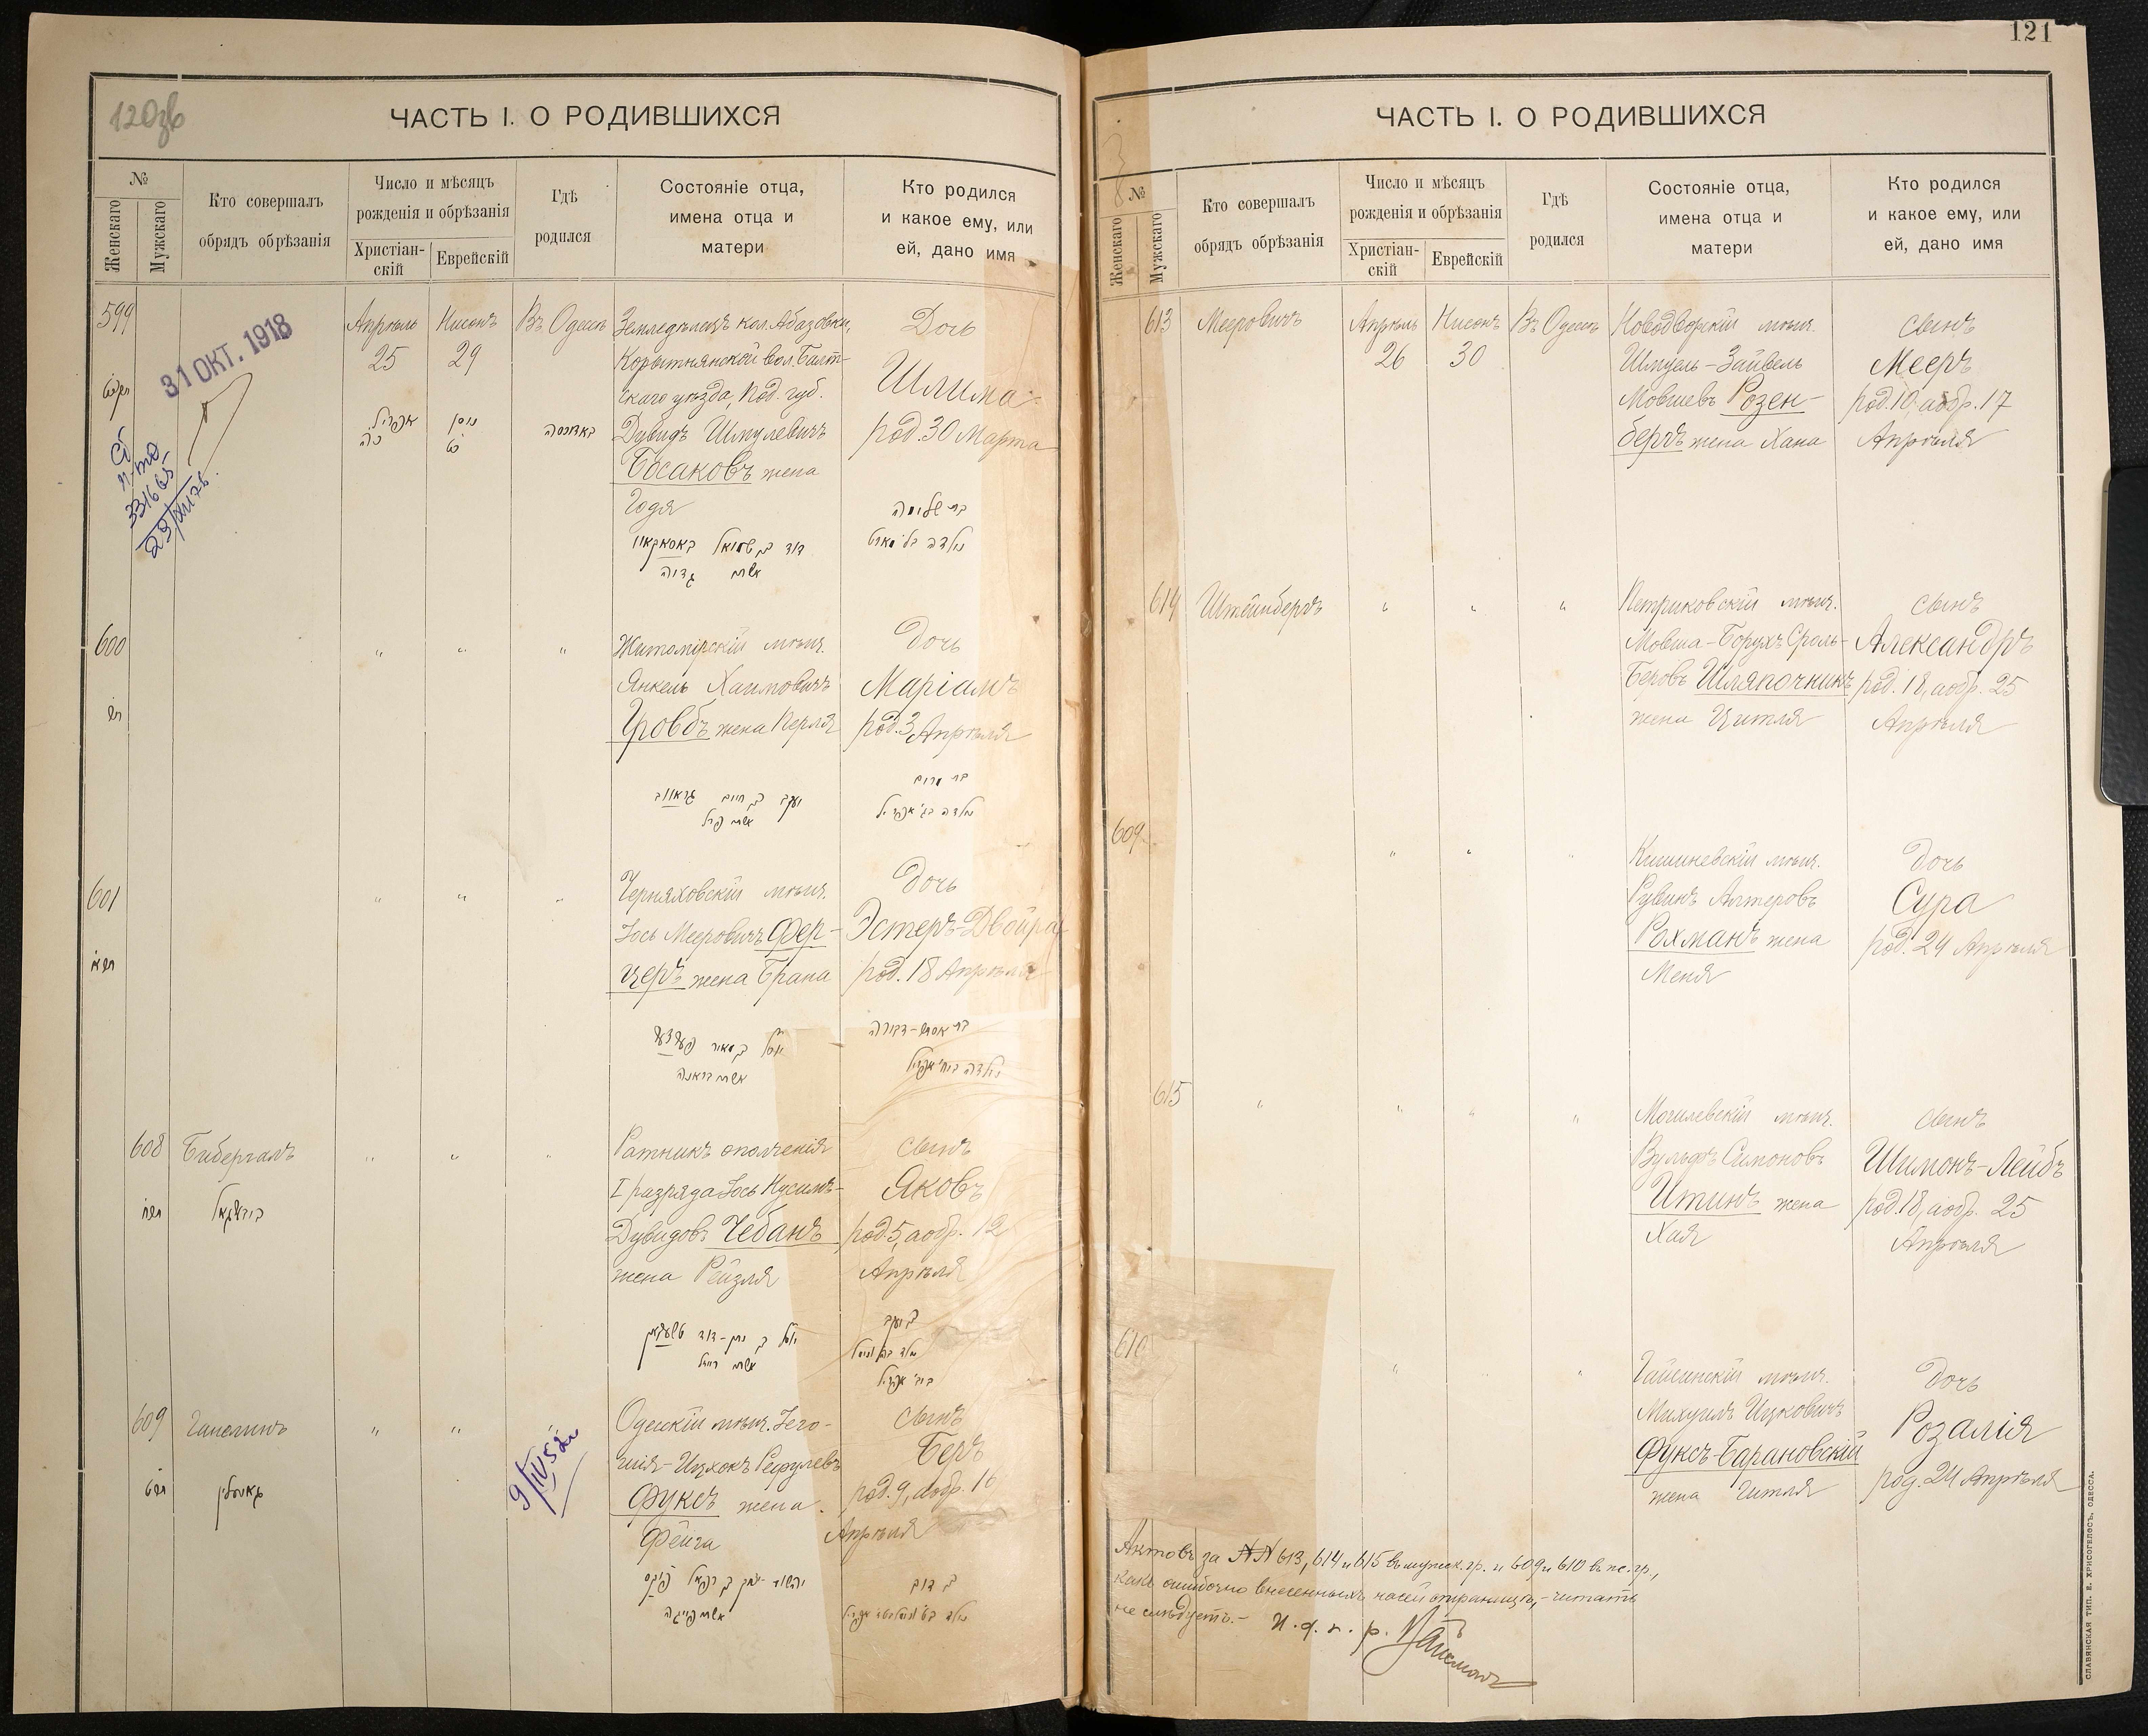 120зв
ЧАСТЬ I. О РОДИВШИХСЯ
№
Женскаго
Мужскаго
Кто совершалъ
обрядъ обрѣзанія
Число и мѣсяцъ
рожденія и обрѣзанія
Христіан-
скій
Еврейскій
Гдѣ
родился
Состояніе отца,
имена отца и
матери
Кто родился
и какое ему, или
ей, дано имя
599
31 ОКТ. 1918
Апрѣль
25
Нисонъ
29
Въ Одессѣ
Земледѣлецъ кол. Абазовки,
Корытнянской вол. Балт-
скаго уѣзда, Под. губ.
Дувидъ Шмулевичъ
Босаковъ жена
Годя
Дочь
Шлима
род. 30 Марта
אפריל
כה
ניסן
כט
באדעסה
דוד בן שמואל באסאקאוו
אשתו גדיה
בת שלימה
נולדה בל׳ מארט
600
תר
"
"
"
Житомірскій мѣщ.
Янкель Хаимовичъ
Гровбъ жена Перля
Дочь
Маріамъ
род. 3 Апрѣля
יעקב בן חיים גראווב
אשתו פרל
בת מרים
נולדה בג׳ אפריל
601
תרא
"
"
"
Черняховскій мѣщ.
Іось Мееровичъ Фер-
церъ жена Брана
Дочь
Эстеръ-Двойра
род. 18 Апрѣля
יוסל בן מאיר פערצער
אשתו בראנה
בת אסתר-דבורה
נולדה בי״ח אפריל
608
תרח
Бибергалъ
ביבערגאל
"
"
"
Ратникъ ополченія
I разряда Іось Нусимъ-
Дувидовъ Чебанъ
жена Рейзля
сынъ
Яковъ
род. 5, а обр. 12
Апрѣля
יוסל בן ניסן-דוד טשעבאן
אשתו רייזל
בן יעקב
נולד בה׳ ונימול
בי״ב אפריל
609
תרט
Гансминъ
"
"
9/IV 52
Одесскій мѣщ. Іего-
шія-Ицхокъ Рефулевъ
Фуксъ жена
Фейга
сынъ
Беръ
род. 9, а обр. 16
Апрѣля
יהושע-יצחק בן רפאל פוקס
אשתו פייגה
בן דוב
נולד בט׳ ונימול בט״ז אפריל
121
ЧАСТЬ I. О РОДИВШИХСЯ
№
Женскаго
Мужскаго
Кто совершалъ
обрядъ обрѣзанія
Число и мѣсяцъ
рожденія и обрѣзанія
Христіан-
скій
Еврейскій
Гдѣ
родился
Состояніе отца,
имена отца и
матери
Кто родился
и какое ему, или
ей, дано имя
613
Мееровичъ
Апрѣль
26
Нисонъ
30
Въ Одессѣ
Новодворскій мѣщ.
Шмуель-Зайвель
Мовшевъ Розен-
бергъ жена Хана
сынъ
Мееръ
род. 10, а обр. 17
Апрѣля
614
Штейнбергъ
"
"
"
Петриковскій мѣщ.
Мовша-Борухъ Сроль-
Беровъ Шляпочникъ
жена Цитля
сынъ
Александръ
род. 18, а обр. 25
Апрѣля
609
"
"
"
Кишиневскій мѣщ.
Рувинъ Алтеровъ
Рохманъ жена
Меня
Дочь
Сура
род. 24 Апрѣля
615
"
"
"
"
Могилевскій мѣщ.
Вульфъ Симоновъ
Итинъ жена
Хая
сынъ
Шимонъ-Лейбъ
род. 18, а обр. 25
Апрѣля
610
"
"
Гайсинскій мѣщ.
Михуилъ Ицковичъ
Фуксъ-Барановскій
жена Гитля
Дочь
Розалія
род. 24 Апрѣля
Актовъ за №№ 613, 614 и 615 въ мужск. гр. и 609 и 610 въ жс. гр.,
какъ ошибочно внесенныхъ на сей страницѣ, - читать
не слѣдуетъ. - И. д. г. р.
СЛАВЯНСКАЯ ТИП. Е. ХРИСОГЕЛОСЪ, ОДЕССА.